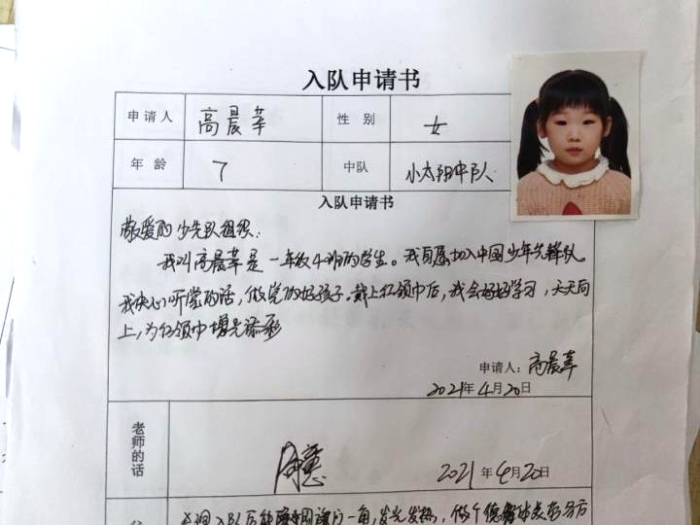 入队申请书
申请人 高晨苹 性别 女
年龄 7 中队 小太阳中队
入队申请书
敬爱的少先队组织:
我叫高晨苹是一年级4班的学生。我自愿加入中国少年先锋队
我决心听党的话,做党的好孩子。戴上红领巾后,我会好好学习,天天向
上,为红领巾增光添彩
申请人:高晨苹
2021年4月20日
老师的话
2021年4月20日